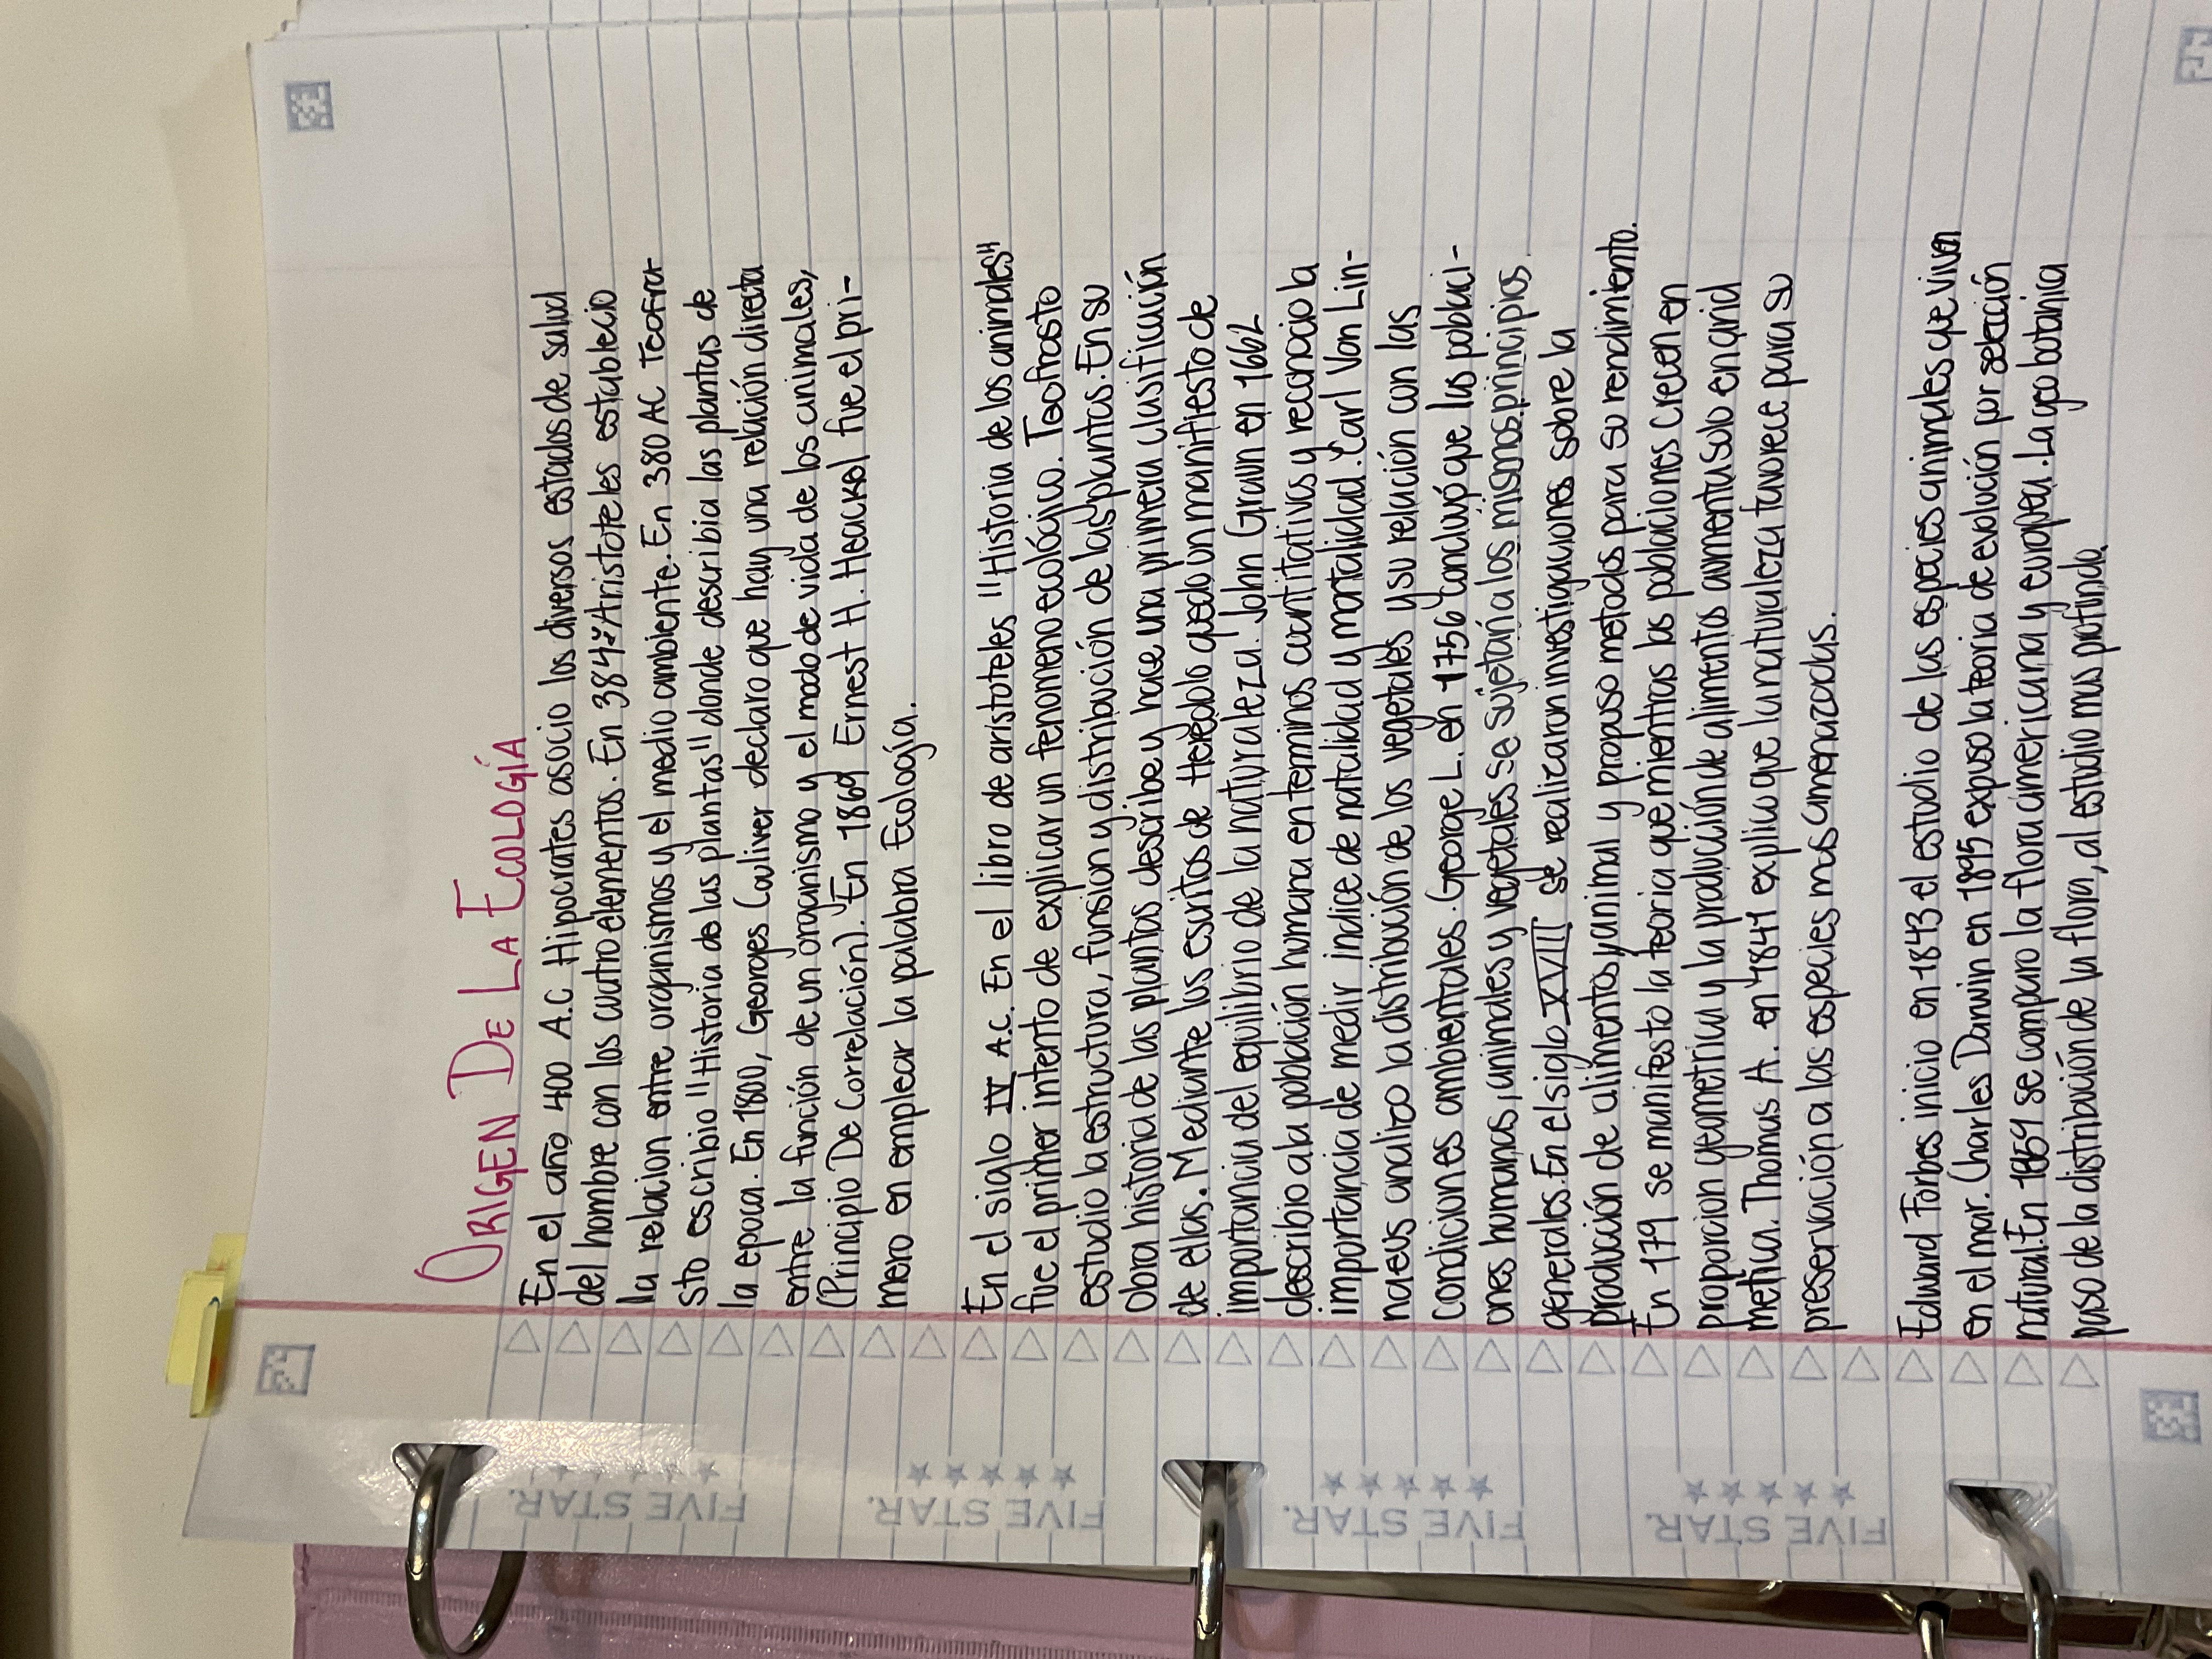 ORIGEN DE LA ECOLOGÍA
En el año 400 A.C Hipocrates asocio los diversos estados de salud
del hombre con los cuatro elementos. En 384 Aristoteles establecio
la relacion entre organismos y el medio ambiente. En 380 AC Teofra-
sto escribio "Historia de las plantas" donde describia las plantas de
la epoca. En 1800, Georges Couliver declaro que hay una relación directa
entre la función de un organismo y el modo de vida de los animales,
(Principio De Correlación). En 1869 Ernest H. Heackel fue el pri-
mero en emplear la palabra Ecología.
En el siglo IV A.C. En el libro de aristoteles "Historia de los animales"
fue el primer intento de explicar un fenomeno ecológico. Teofrasto
estudio la estructura, funsion y distribución de las plantas. En su
Obra historia de las plantas describe y hace una primera clasificación
de ellas. Mediante los escritos de Heredolo quedo un manifiesto de
importancia del equilibrio de la naturaleza. John Graun en 1662
describio a la población humana en terminos cuantitativos y reconocio la
importancia de medir indice de natalidad y mortalidad. Carl Von Lin-
naeus analizo la distribución de los vegetales y su relación con las
condiciones ambientales. George L. en 1756 concluyó que las poblaci-
ones humanas, animales y vegetales se sujetan a los mismos principios
generales. En el siglo XVIII se realizaron investigaciones sobre la
producción de alimentos y animal y propuso metodos para su rendimiento.
En 179 se manifesto la teoria que mientras las poblaciones crecen en
proporcion geometrica y la producción de alimentos aumenta solo en arid
metica. Thomas A. en 1841 explico que la naturaleza favorece para su
preservación a las especies mas amenazadas.
Edward Forbes inicio en 1843 el estudio de las especies animales que viven
en el mar. Charles Darwin en 1895 expuso la teoria de evolución por selección
natural. En 1869 se comparo la flora americana y europea. La geo botanica
paso de la distribución de la flora, al estudio mas profundo.
FIVE STAR.
FIVE STAR.
FIVE STAR.
FIVE STAR.